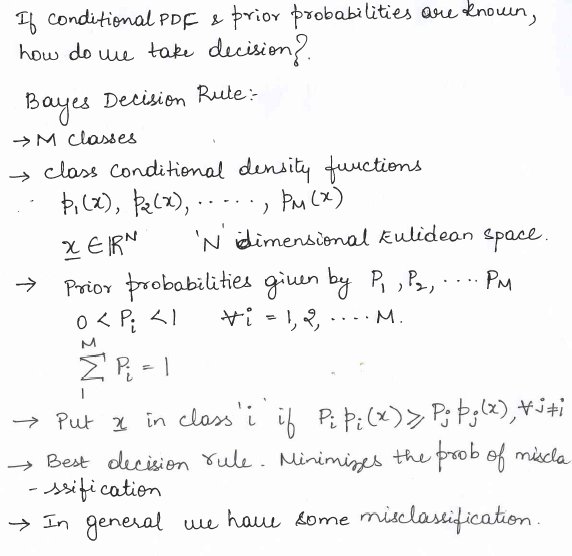 If conditional PDF & prior probabilities are known,
how do we take decision?.
Bayes Decision Rule:-
→ M classes
→ class conditional density functions
p₁(x), p₂(x), ....., p_M(x)
x ∈ ℝᴺ 'N' dimensional Eulidean space.
→ Prior probabilities given by P₁, P₂, .... P_M
0 < Pᵢ < 1 ∀i = 1, 2, .... M.
M
∑ Pᵢ = 1
1
→ Put x in class 'i' if Pᵢ pᵢ(x) ≥ Pⱼ pⱼ(x), ∀j≠i
→ Best decision rule. Minimizes the prob of miscla
-ssification
→ In general we have some misclassification.